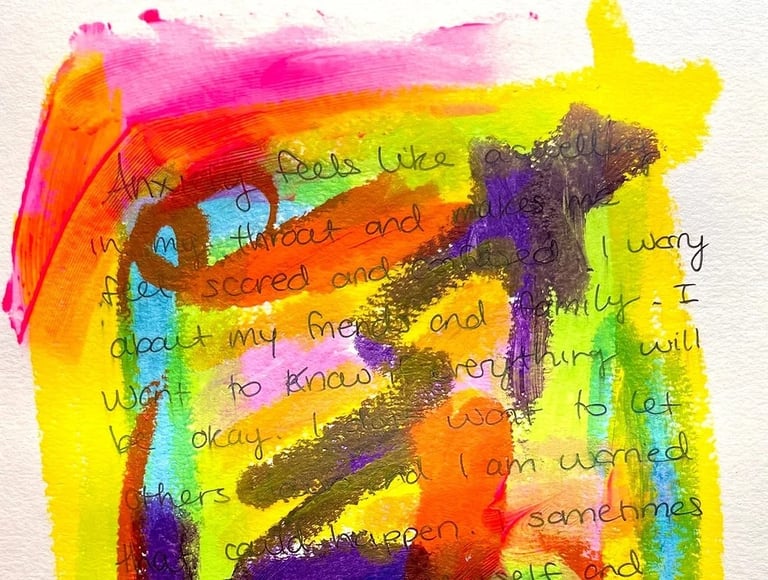 Anxiety feels like a swelling
in my throat and makes me
feel scared and confused. I worry
about my friends and family. I
want to know everything will
be okay. I don't want to let
others and I am worried
that could happen. sometimes
self and